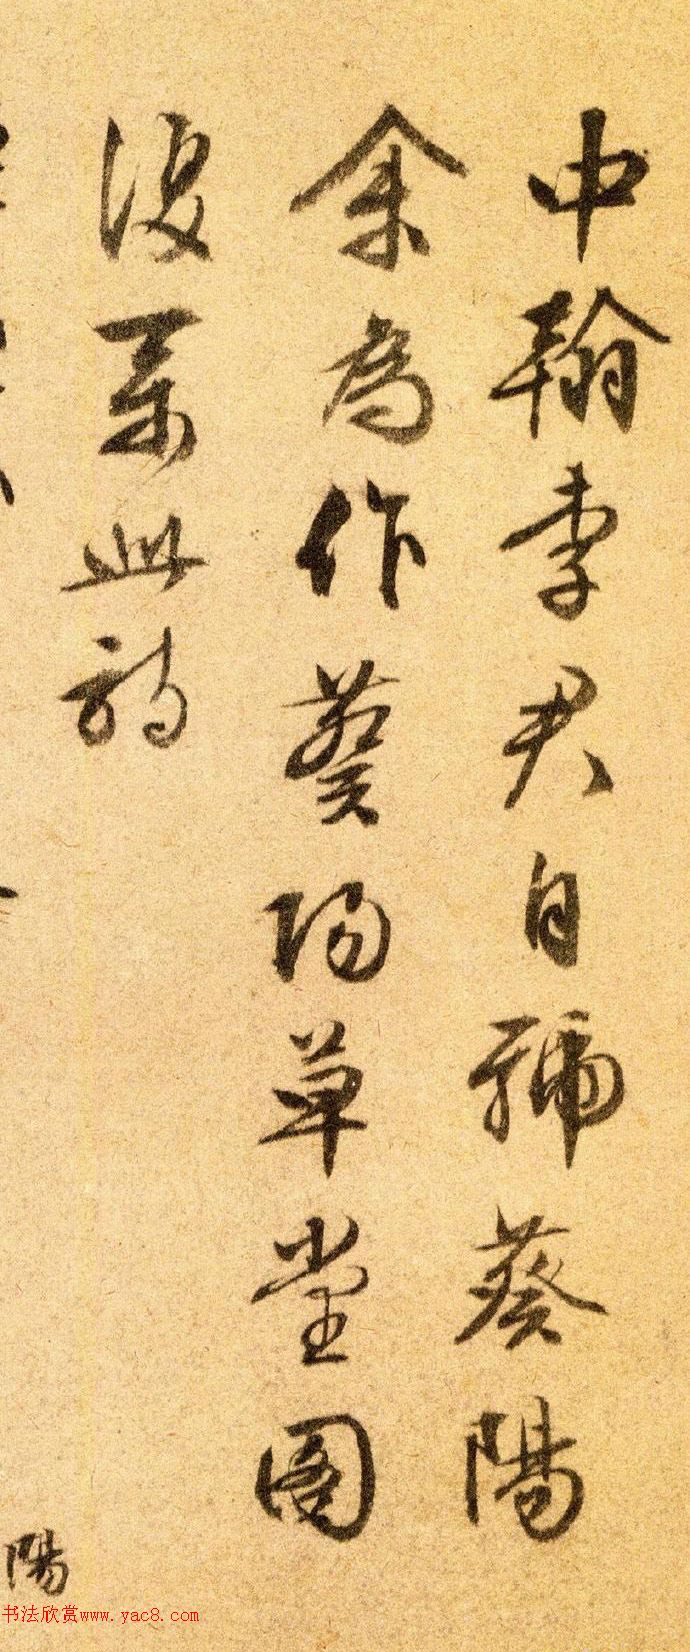 中翰李君自號葵陽
余為作葵陽草堂圖
復系此詩
陽
书法欣赏www.yac8.com